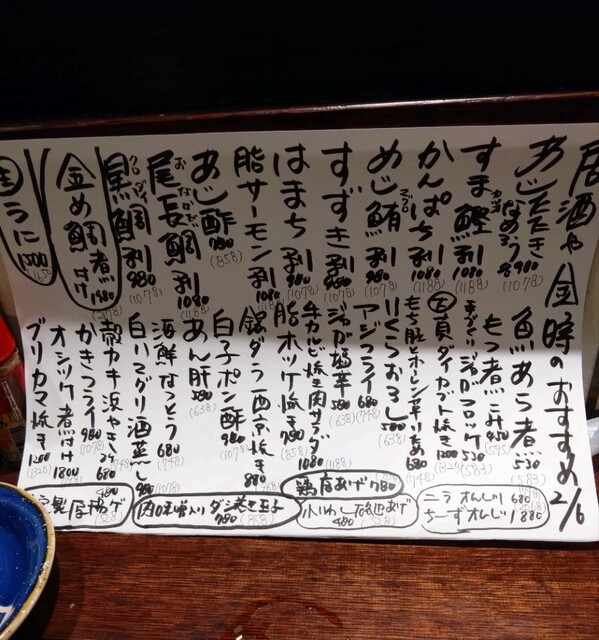 居酒や 金時のおすすめ 2/6
あじ たたき なめろう 各980 (1078)
すま鰹刺 1080 (1188)
かんぱち刺 1080 (1188)
めじ鮪刺 980 (1078)
すずき刺 980 (1078)
はまち刺 980 (1078)
脂サーモン刺 1080
あじ酢 780 (858)
尾長鯛刺 1080
黒鯛刺 980 (1078)
金め鯛煮つけ 1980
生うに 1500
魚あら煮 530 (583)
もつ煮こみ 450
ジャガコロッケ 530 (583)
真ダイカブト焼き 1200 (1320)
もち豚とホーレン草いため 680 (748)
いくらおろし 580 (638)
アジフライ 680 (748)
牛カルビ焼き肉サラダ 1080 (1188)
脂ホッケ焼き 780 (858)
銀ダラ西京焼き 880
白子ポン酢 980 (1078)
あん肝 580 (638)
海鮮なっとう 680 (748)
白ハマグリ酒蒸し
殻カキ浜やき 680 (748)
かきフライ 980 (1078)
オシツケ煮付け 1800
ブリカマ焼き 1200 (1320)
ニラオムレツ 680
ちーずオムレツ 880
鶏唐あげ 780
小いわし唐あげ 480
肉味噌入りダシ巻き玉子 780 (858)